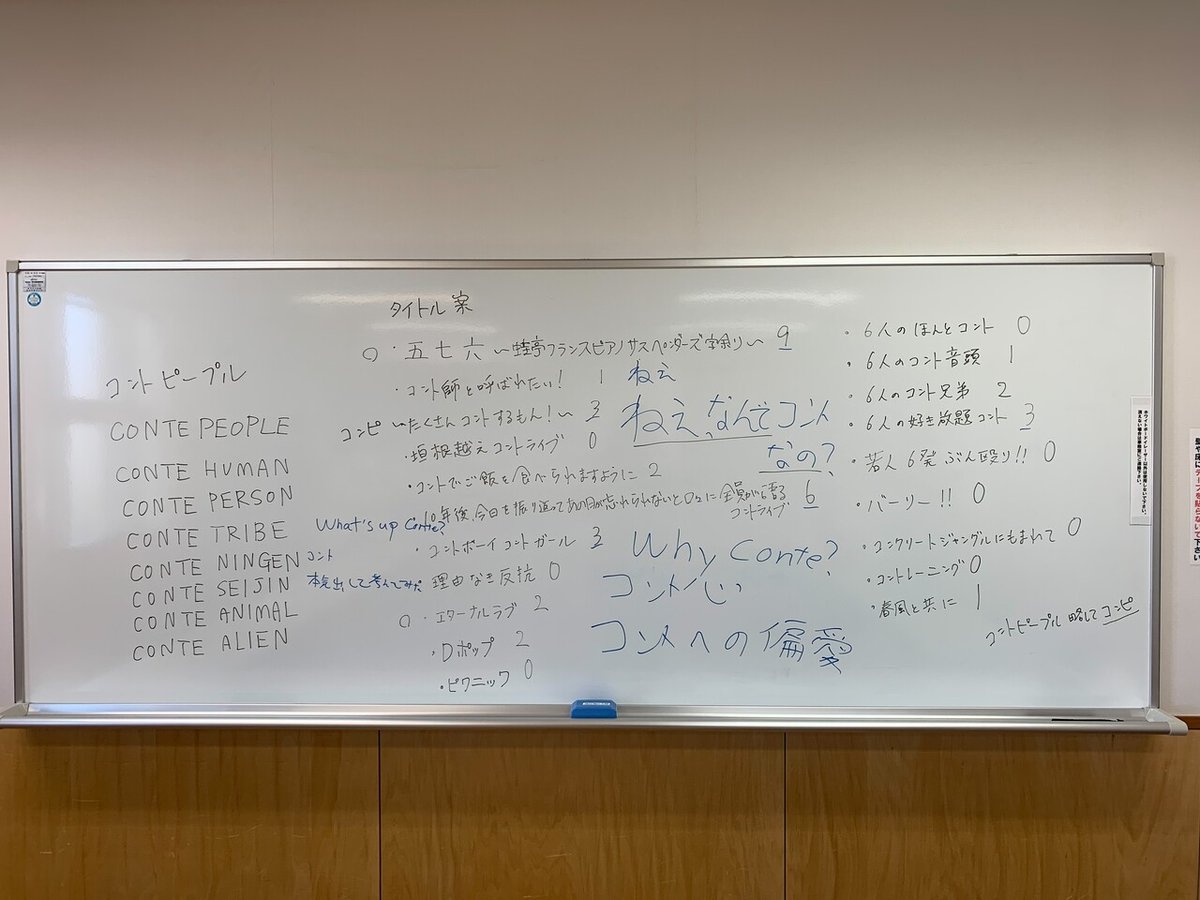 タイトル案
コントピープル
CONTE PEOPLE
CONTE HUMAN
CONTE PERSON
CONTE TRIBE
CONTE NINGEN
CONTE SEIJIN
CONTE ANIMAL
CONTE ALIEN
○・五七六〜蛙亭フランスピアノサスペンダーズ字余り〜 9
・コント師と呼ばれたい! 1
コンピ 〜たくさんコントするもん!〜 3
・垣根越えコントライブ 0
・コントでご飯を食べられますように 2
10年後、今日を振り返ってあの日が忘れられないと口々に全員が語る
コントライブ 6
・コントボーイコントガール 3
理由なき反抗 0
○・エターナルラブ 2
・Dポップ 2
・ピクニック 0
What's up Conte?
コント
本気出して考えてみた
ねえ
ねえ、なんでコント
なの?
Why Conte?
コント心
コントへの偏愛
・6人のほんとコント 0
・6人のコント音頭 1
・6人のコント兄弟 2
・6人の好き放題コント 3
・若人6発ぶん殴り!! 0
・バーリー!! 0
・コンクリートジャングルにもまれて 0
・コントレーニング 0
・春風と共に 1
コントピープル 略して コンピ
ホワイトボードイレーザー以外は使用しないで下さい。
テープを貼らないで下さい